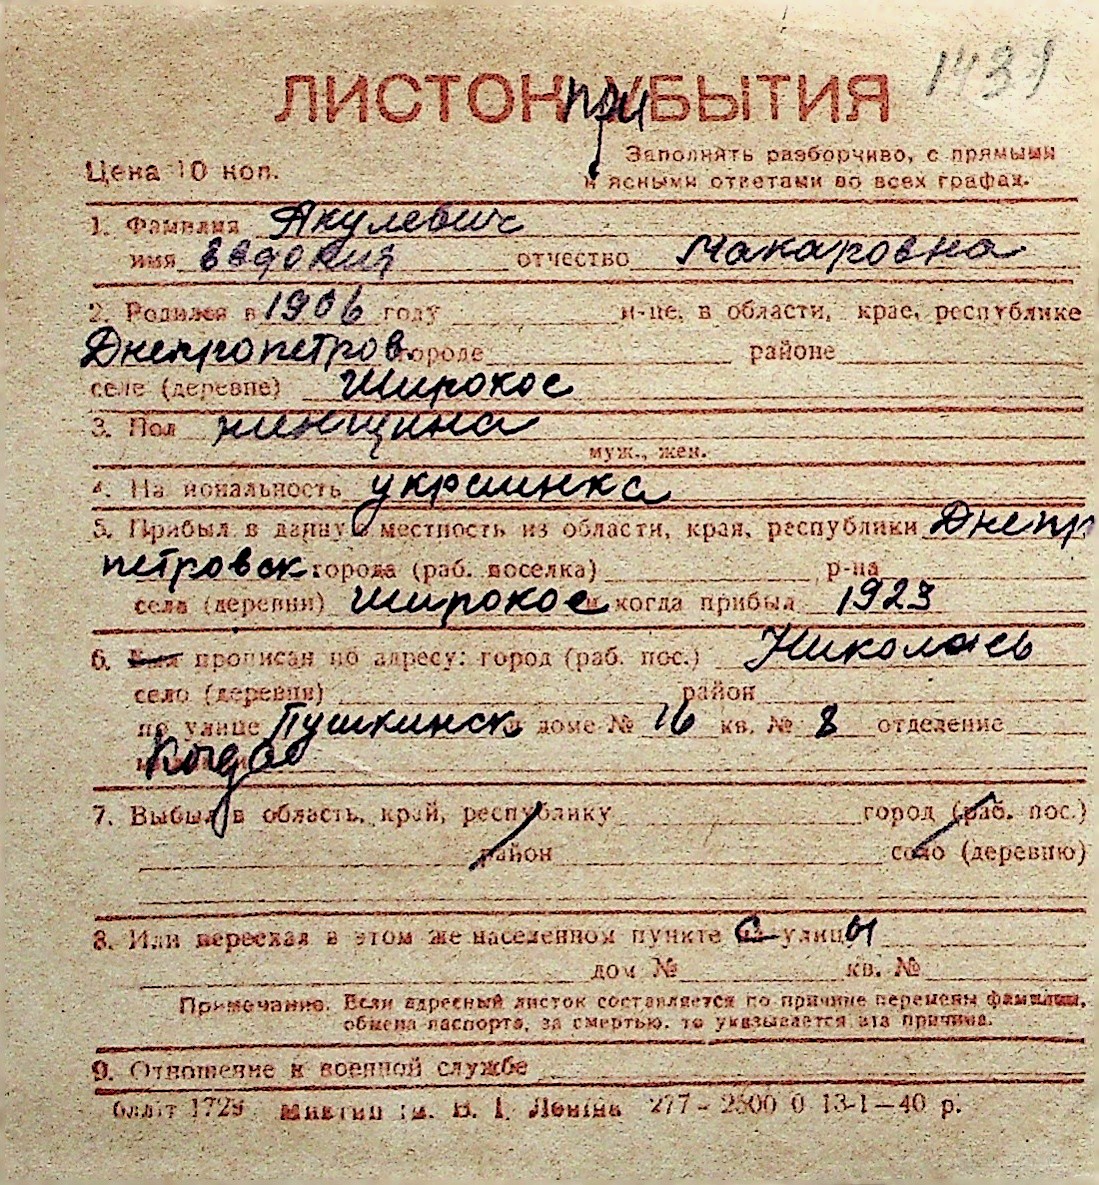 1439
ЛИСТОК ПРИБЫТИЯ
Цена 10 коп.
Заполнять разборчиво, с прямыми
и ясными ответами во всех графах.
1. Фамилия Якулевич
имя Евдокия отчество Макаровна
2. Родился в 1906 году м-це, в области, крае, республике
Днепропетров. городе районе
селе (деревне) Широкое
3. Пол женщина
муж., жен.
4. Национальность украинка
5. Прибыл в данную местность из области, края, республики Днепр
петровск города (раб. поселка) р-на
села (деревни) Широкое и когда прибыл 1923
6. прописан по адресу: город (раб. пос.) Николаев
село (деревня) район
по улице Пушкинск в доме № 16 кв. № 8 отделение
Когда
7. Выбыл в область, край, республику город (раб. пос.)
район село (деревню)
8. Или переехал в этом же населенном пункте с улицы
дом № кв. №
Примечание. Если адресный листок составляется по причине перемены фамилии,
обмена паспорта, за смертью, то указывается эта причина.
9. Отношение к военной службе
блліт 1729 Миктип ім. В. І. Леніна 277-2500 0 13-1-40 р.